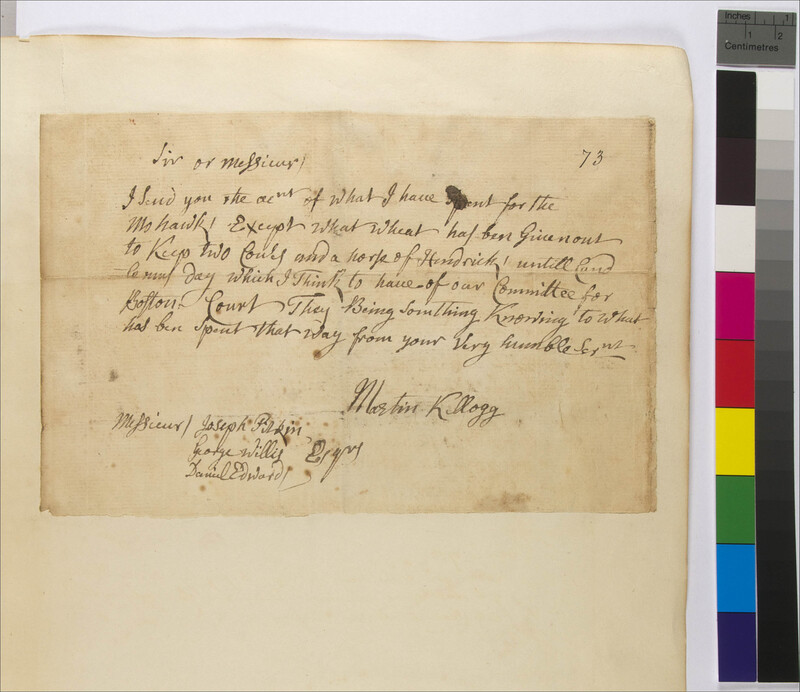 73
Sir or Messieurs
I Send you the acnt of what I have Spent for the
Mohawks Except what wheat has ben Given out
to Keep two Cows and a horse of Hendricks untill
Day which I Think to have of our Committee for
Boston Court They Being Somthing Knowing to what
has ben Spent that way from your Very humble Sernt
Martin Kellogg
Messieurs Joseph Pitkin
George Willis Esqrs
Daniel Edwards
Inches 1
1 2
Centimetres